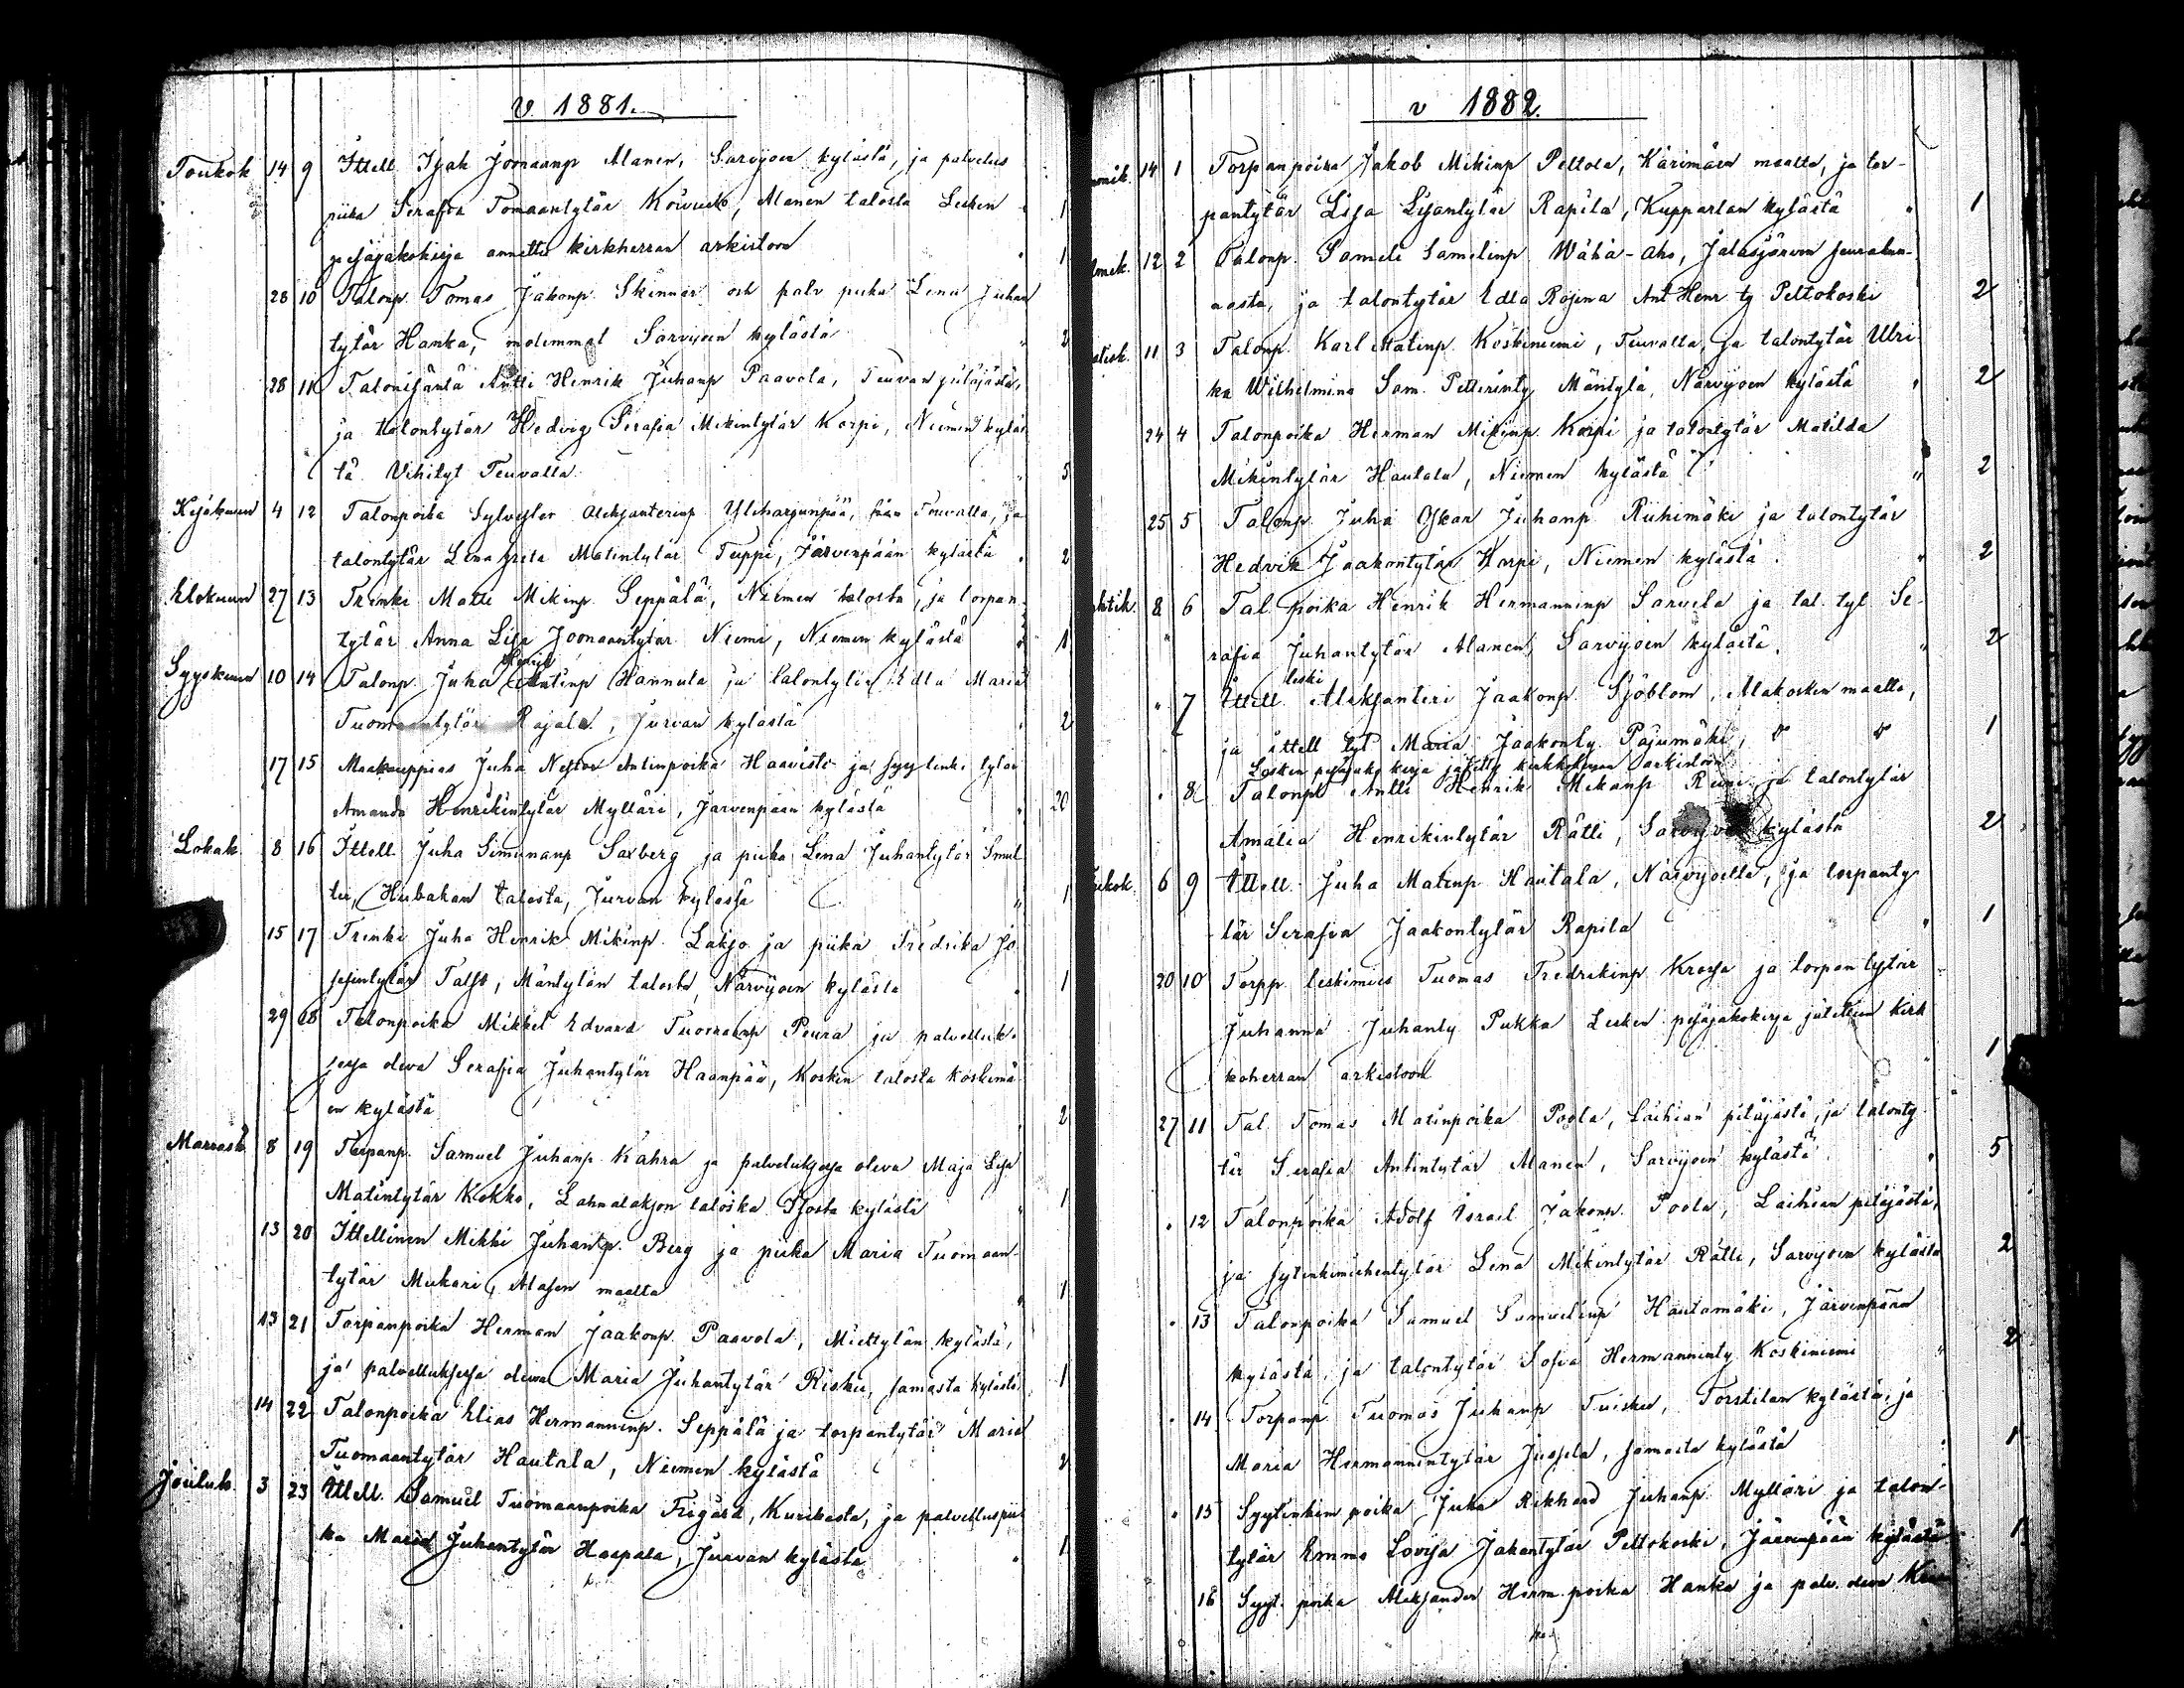 v. 1881.
Toukok 14 9 Ittell. Isak Joonaanp Alanen, Sarvijoen kylästä, ja palvelus
piika Serafia Tomaantytär Koivisto, Alanen talosta Lesken " 1
pesäjakokirja annettu kirkherran arkistoon " 1
28 10 Talonp. Tomas Jakonp. Skinnar och palv piika Lena Juhan
tytär Hanka, molemmat Sarvijoen kylästä " 2
28 11 Talonisäntä Antti Henrik Juhanp Paavola, Teuvan pitäjästä,
ja talontytär Hedvig Serafia Mikintytär Korpi, Niemen kyläs
tä Vihityt Teuvalla " 5
Kesäkuun 4 12 Talonpoika Sylvester Aleksanterinp Yliharjunpää, Teuvalla, ja
talontytär Lena Greta Matintytär Teppi, Järvenpään kylästä " 2
Elokuun 27 13 Trenki Matti Mikinp. Seppälä, Niemen talosta, ja torpan
tytär Anna Lisa Joonaantytär Niemi, Niemen kylästä " 1
Syyskuun 10 14 Talonp. Juha Henrik Antinp Hannula ja talontytär Edla Maria
Tuomaantytär Rajala, Jurvan kylästä " 2
17 15 Maakauppias Juha Nestor Antinpoika Haavisto ja syytink. tytär
Amanda Henrikintytär Mylläri, Järvenpään kylästä " 20
Lokak. 8 16 Ittell. Juha Simunanp Saxberg ja piika Lena Juhantytär Smul
ter, Hubakan talosta, Jurvan kylässä " 1
15 17 Trenki Juha Henrik Mikinp. Lakso ja piika Fredrika Jo
sefintytär Talso, Mäntylän talosta, Närvijoen kylästä " 1
29 18 Talonpoika Mikkel Edvard Tuomaanp Peura ja palvelluk-
sessa oleva Serafia Juhantytär Haanpää, Kosken talosta Koskimä
en kylästä 2
Marrask 8 19 Torpanp. Samuel Juhanp Kahra ja palveluksessa oleva Maja Lisa
Matintytär Kokko, Lahnalakson talosta kylästä " 1
13 20 Ittellinen Mikki Juhanp. Berg ja piika Maria Tuomaan-
tytär Mukari, Alasen maalta " 1
13 21 Torpanpoika Herman Jaakonp Paavola, Miettylän kylästä,
ja palvelluksessa oleva Maria Juhantytär Risku, samasta kylästä 1
14 22 Talonpoika Elias Hermanninp. Seppälä ja torpantytär Maria
Tuomaantytär Hautala, Niemen kylästä 2
Jouluk. 3 23 Ittell. Samuel Tuomaanpoika Frigård, Kurikasta, ja palvelluspii
ka Maria Juhantytär Haapala, Jurvan kylästä " 1
v 1882.
14 1 Torpanpoika Jakob Mikinp Peltola, Kärimäen maalta, ja tor-
pantytär Lisa Lisantytär Rapila, Kupparlan kylästä " 1
12 2 Talonp. Sameli Samelinp. Wähä-aho, Jalasjärven seurakun-
nasta, ja talontytär Edla Rosina Ant Henr ty Peltokoski 2
11 3 Talonp. Karl Matinp. Koskiniemi, Teuvalta, ja talontytär Ulri
ka Wilhelmina Sam. Petterinty Mäntylä, Närvijoen kylästä " 2
24 4 Talonpoika Herman Mikinp. Korpi ja talontytär Matilda
Mikintytär Hautala, Niemen kylästä " 2
25 5 Talonp. Juha Oskar Juhanp. Riihimäki ja talontytär
Hedvik Jaakontytär Korpi, Niemen kylästä " 2
8 6 Tal. poika Henrik Hermanninp Sarvela ja tal. tyt Se-
rafia Juhantytär Alanen, Sarvijoen kylästä " 2
" 7 Ittell. leski Aleksanteri Jaakonp. Sjöblom, Alakosken maalta,
ja ittell tyt Maria Jaakonty. Pajumäki, " " 1
Lesken pesäjako kirja jätetty kirkkoherran arkistoon
" 8 Talonp. Antti Henrik Mikanp Reini ja talontytär
Amalia Henrikintytär Rätti, Sarvijoen kylästä 2
6 9 Ittell. Juha Matinp Hautala, Närvijoella, ja torpanty
tär Serafia Jaakontytär Rapila " 1
20 10 Torpp. leskimies Tuomas Fredrikinp Krossa ja torpan tytär
Juhanna Juhanty Pukka Lesken pesäjakokirja jätettiin kirk
koherran arkistoon " 1
27 11 Tal. Tomas Matinpoika Poola, Laihian pitäjästä, ja talonty
tär Serafia Antintytär Alanen, Sarvijoen kylästä " 5
" 12 Talonpoika Adolf Israel Jakonp. Poola, Laihian pitäjästä,
ja sytinkimiehentytär Lena Mikintytär Rätti, Sarvijoen kylästä 2
" 13 Talonpoika Samuel Samuelinp Hautamäki, Järvenpään
kylästä, ja talontytär Sofia Hermanninty Koskiniemi " 2
" 14 Torpanp. Tuomas Juhanp Tuisku, Torstilan kylästä, ja
Maria Hermannintytär Jussila, samasta kylästä " 1
" 15 Syytinkin poika Juha Rikhard Juhanp. Mylläri ja talon-
tytär Emma Lovisa Jakontytär Peltokoski, Järvenpään kylästä 1
16 Syyt. poika Aleksander Herm. poika Hanka ja palv. oleva